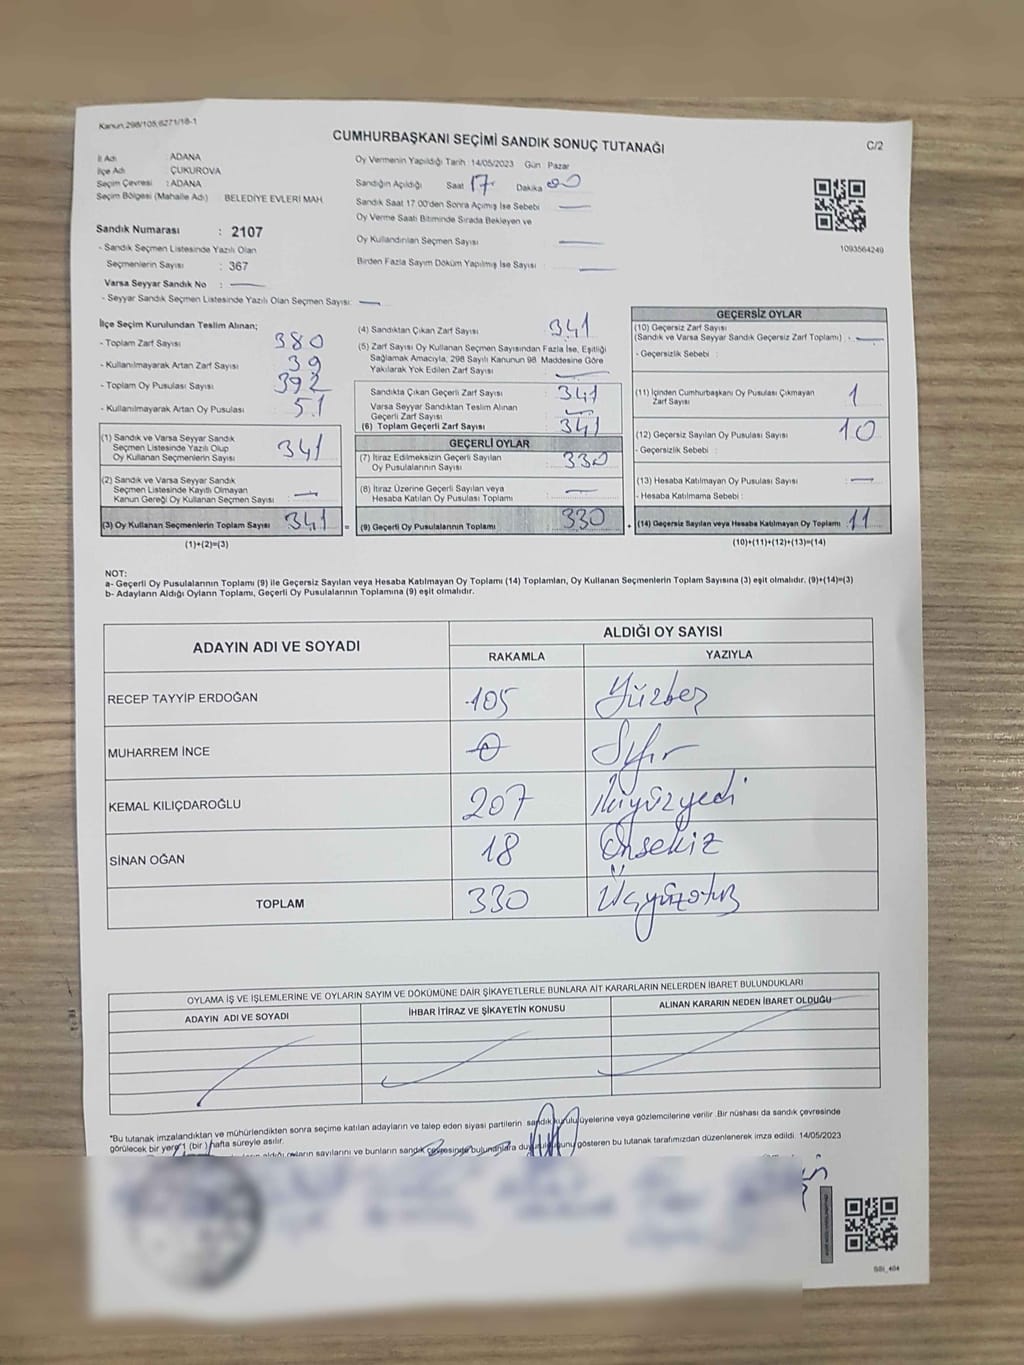 Kanun.298/105,6271/18-1
CUMHURBAŞKANI SEÇİMİ SANDIK SONUÇ TUTANAĞI
C/2
İl Adı : ADANA
İlçe Adı : ÇUKUROVA
Seçim Çevresi : ADANA
Seçim Bölgesi (Mahalle Adı) : BELEDİYE EVLERİ MAH
Sandık Numarası : 2107
- Sandık Seçmen Listesinde Yazılı Olan
Seçmenlerin Sayısı : 367
Varsa Seyyar Sandık No :
- Seyyar Sandık Seçmen Listesinde Yazılı Olan Seçmen Sayısı:
Oy Vermenin Yapıldığı Tarih :14/05/2023 Gün : Pazar
Sandığın Açıldığı Saat 17 Dakika 00
Sandık Saat 17.00'den Sonra Açımış İse Sebebi
Oy Verme Saati Bitiminde Sırada Bekleyen ve
Oy Kullandırılan Seçmen Sayısı
Birden Fazla Sayım Döküm Yapılmış İse Sayısı :
1093564249
İlçe Seçim Kurulundan Teslim Alınan;
- Toplam Zarf Sayısı : 380
- Kullanılmayarak Artan Zarf Sayısı : 39
- Toplam Oy Pusulası Sayısı : 392
- Kullanılmayarak Artan Oy Pusulası : 51
(1) Sandık ve Varsa Seyyar Sandık
Seçmen Listesinde Yazılı Olup
Oy Kullanan Seçmenlerin Sayısı : 341
(2) Sandık ve Varsa Seyyar Sandık
Seçmen Listesinde Kayıtlı Olmayan
Kanun Gereği Oy Kullanan Seçmen Sayısı :
(3) Oy Kullanan Seçmenlerin Toplam Sayısı : 341 =
(1)+(2)=(3)
(4) Sandıktan Çıkan Zarf Sayısı : 341
(5) Zarf Sayısı Oy Kullanan Seçmen Sayısından Fazla İse, Eşitliği
Sağlamak Amacıyla, 298 Sayılı Kanunun 98. Maddesine Göre
Yakılarak Yok Edilen Zarf Sayısı :
Sandıkta Çıkan Geçerli Zarf Sayısı : 341
Varsa Seyyar Sandıktan Teslim Alınan
Geçerli Zarf Sayısı :
(6) Toplam Geçerli Zarf Sayısı : 341
GEÇERLİ OYLAR
(7) İtiraz Edilmeksizin Geçerli Sayılan
Oy Pusulalarının Sayısı : 330
(8) İtiraz Üzerine Geçerli Sayılan veya
Hesaba Katılan Oy Pusulası Toplamı :
(9) Geçerli Oy Pusulalarının Toplamı : 330 +
GEÇERSİZ OYLAR
(10) Geçersiz Zarf Sayısı
(Sandık ve Varsa Seyyar Sandık Geçersiz Zarf Toplamı) :
- Geçersizlik Sebebi :
(11) İçinden Cumhurbaşkanı Oy Pusulası Çıkmayan
Zarf Sayısı : 1
(12) Geçersiz Sayılan Oy Pusulası Sayısı : 10
- Geçersizlik Sebebi :
(13) Hesaba Katılmayan Oy Pusulası Sayısı :
- Hesaba Katılmama Sebebi :
(14) Geçersiz Sayılan veya Hesaba Katılmayan Oy Toplamı : 11
(10)+(11)+(12)+(13)=(14)
NOT:
a- Geçerli Oy Pusulalarının Toplamı (9) ile Geçersiz Sayılan veya Hesaba Katılmayan Oy Toplamı (14) Toplamları, Oy Kullanan Seçmenlerin Toplam Sayısına (3) eşit olmalıdır. (9)+(14)=(3)
b- Adayların Aldığı Oyların Toplamı, Geçerli Oy Pusulalarının Toplamına (9) eşit olmalıdır.
ADAYIN ADI VE SOYADI
ALDIĞI OY SAYISI
RAKAMLA YAZIYLA
RECEP TAYYİP ERDOĞAN 105 Yüzbeş
MUHARREM İNCE 0 Sıfır
KEMAL KILIÇDAROĞLU 207 İkiyüzyedi
SİNAN OĞAN 18 Onsekiz
TOPLAM 330 Üçyüzotuz
OYLAMA İŞ VE İŞLEMLERİNE VE OYLARIN SAYIM VE DÖKÜMÜNE DAİR ŞİKAYETLERLE BUNLARA AİT KARARLARIN NELERDEN İBARET BULUNDUKLARI
ADAYIN ADI VE SOYADI İHBAR İTİRAZ VE ŞİKAYETİN KONUSU ALINAN KARARIN NEDEN İBARET OLDUĞU
*Bu tutanak imzalandıktan ve mühürlendikten sonra seçime katılan adayların ve talep eden siyasi partilerin sandık kurulu üyelerine veya gözlemcilerine verilir .Bir nüshası da sandık çevresinde
görülecek bir yere 1 (bir) hafta süreyle asılır.
oyların sayılarını ve bunların sandık çevresinde bulunanlara gösteren bu tutanak tarafımızdan düzenlenerek imza edildi. 14/05/2023